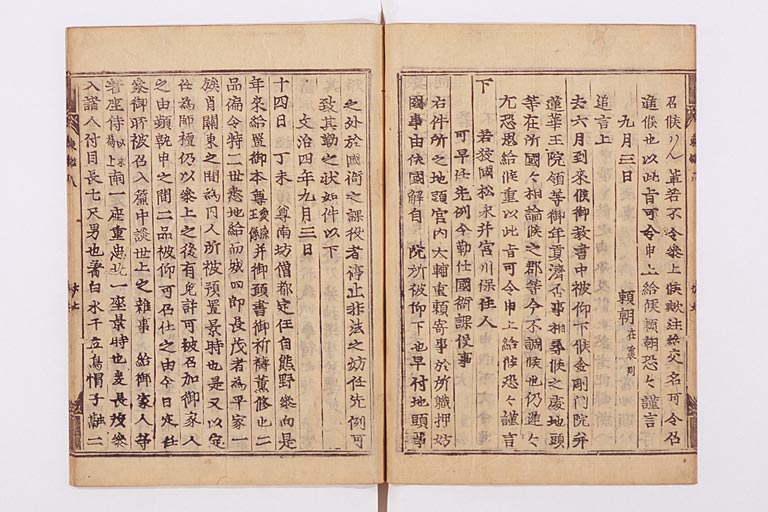 召候八ん輩若不令参上候歟注給交名可令召
進候也以此旨可令申上給候頼朝恐々謹言
九月三日
頼朝 在裏判
進言上
去六月到来候御教書中被仰下候金剛門院并
蓮華王院領等御年貢済否事相尋候之處地頭
等在所國々相諭候之郡等今不調候也仍進々
尤恐思給候重以此旨可令申上給候恐々謹言
下 若狭國松永并宮川保住人
可早任先例令勤仕國衙課役事
右件所之地頭宮内大輔重頼寄事於所職押妨
國事由依國解自 院所被仰下也早付地頭事
之外於國衙之課役者停止非法之妨任先例可
致其勤之状如件以下
文治四年九月三日
十四日 丁未 尊南坊僧都定任自熊野参向是
年来給置御本尊 并御願書御祈祷薫修也二
品偏令恃二世悉地給而城四郎長茂者為平家一
族背關東之間為囚人所被預置景時也是又以定
任為師檀仍以参上之後有免許可被召加御家人
之由頻執申之間二品被仰可召仕之由今日定任
参御所被召入簾中談世上之雜事 給御家人等
著座侍 南一座重忠北一座景時也爰長茂参
入諸人付目長七尺男也著白水干立烏帽子融二